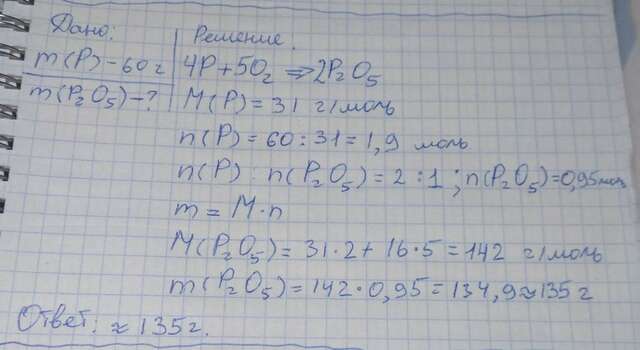 Дано:
Решение.
m(P) – 60 г
4P + 5O₂ ⇒ 2P₂O₅
m(P₂O₅) – ?
M(P) = 31 г/моль
n(P) = 60 : 31 = 1,9 моль
n(P) : n(P₂O₅) = 2 : 1 ; n(P₂O₅) = 0,95 моль
m = M · n
M(P₂O₅) = 31 · 2 + 16 · 5 = 142 г/моль
m(P₂O₅) = 142 · 0,95 = 134,9 ≈ 135 г
Ответ: ≈ 135 г.